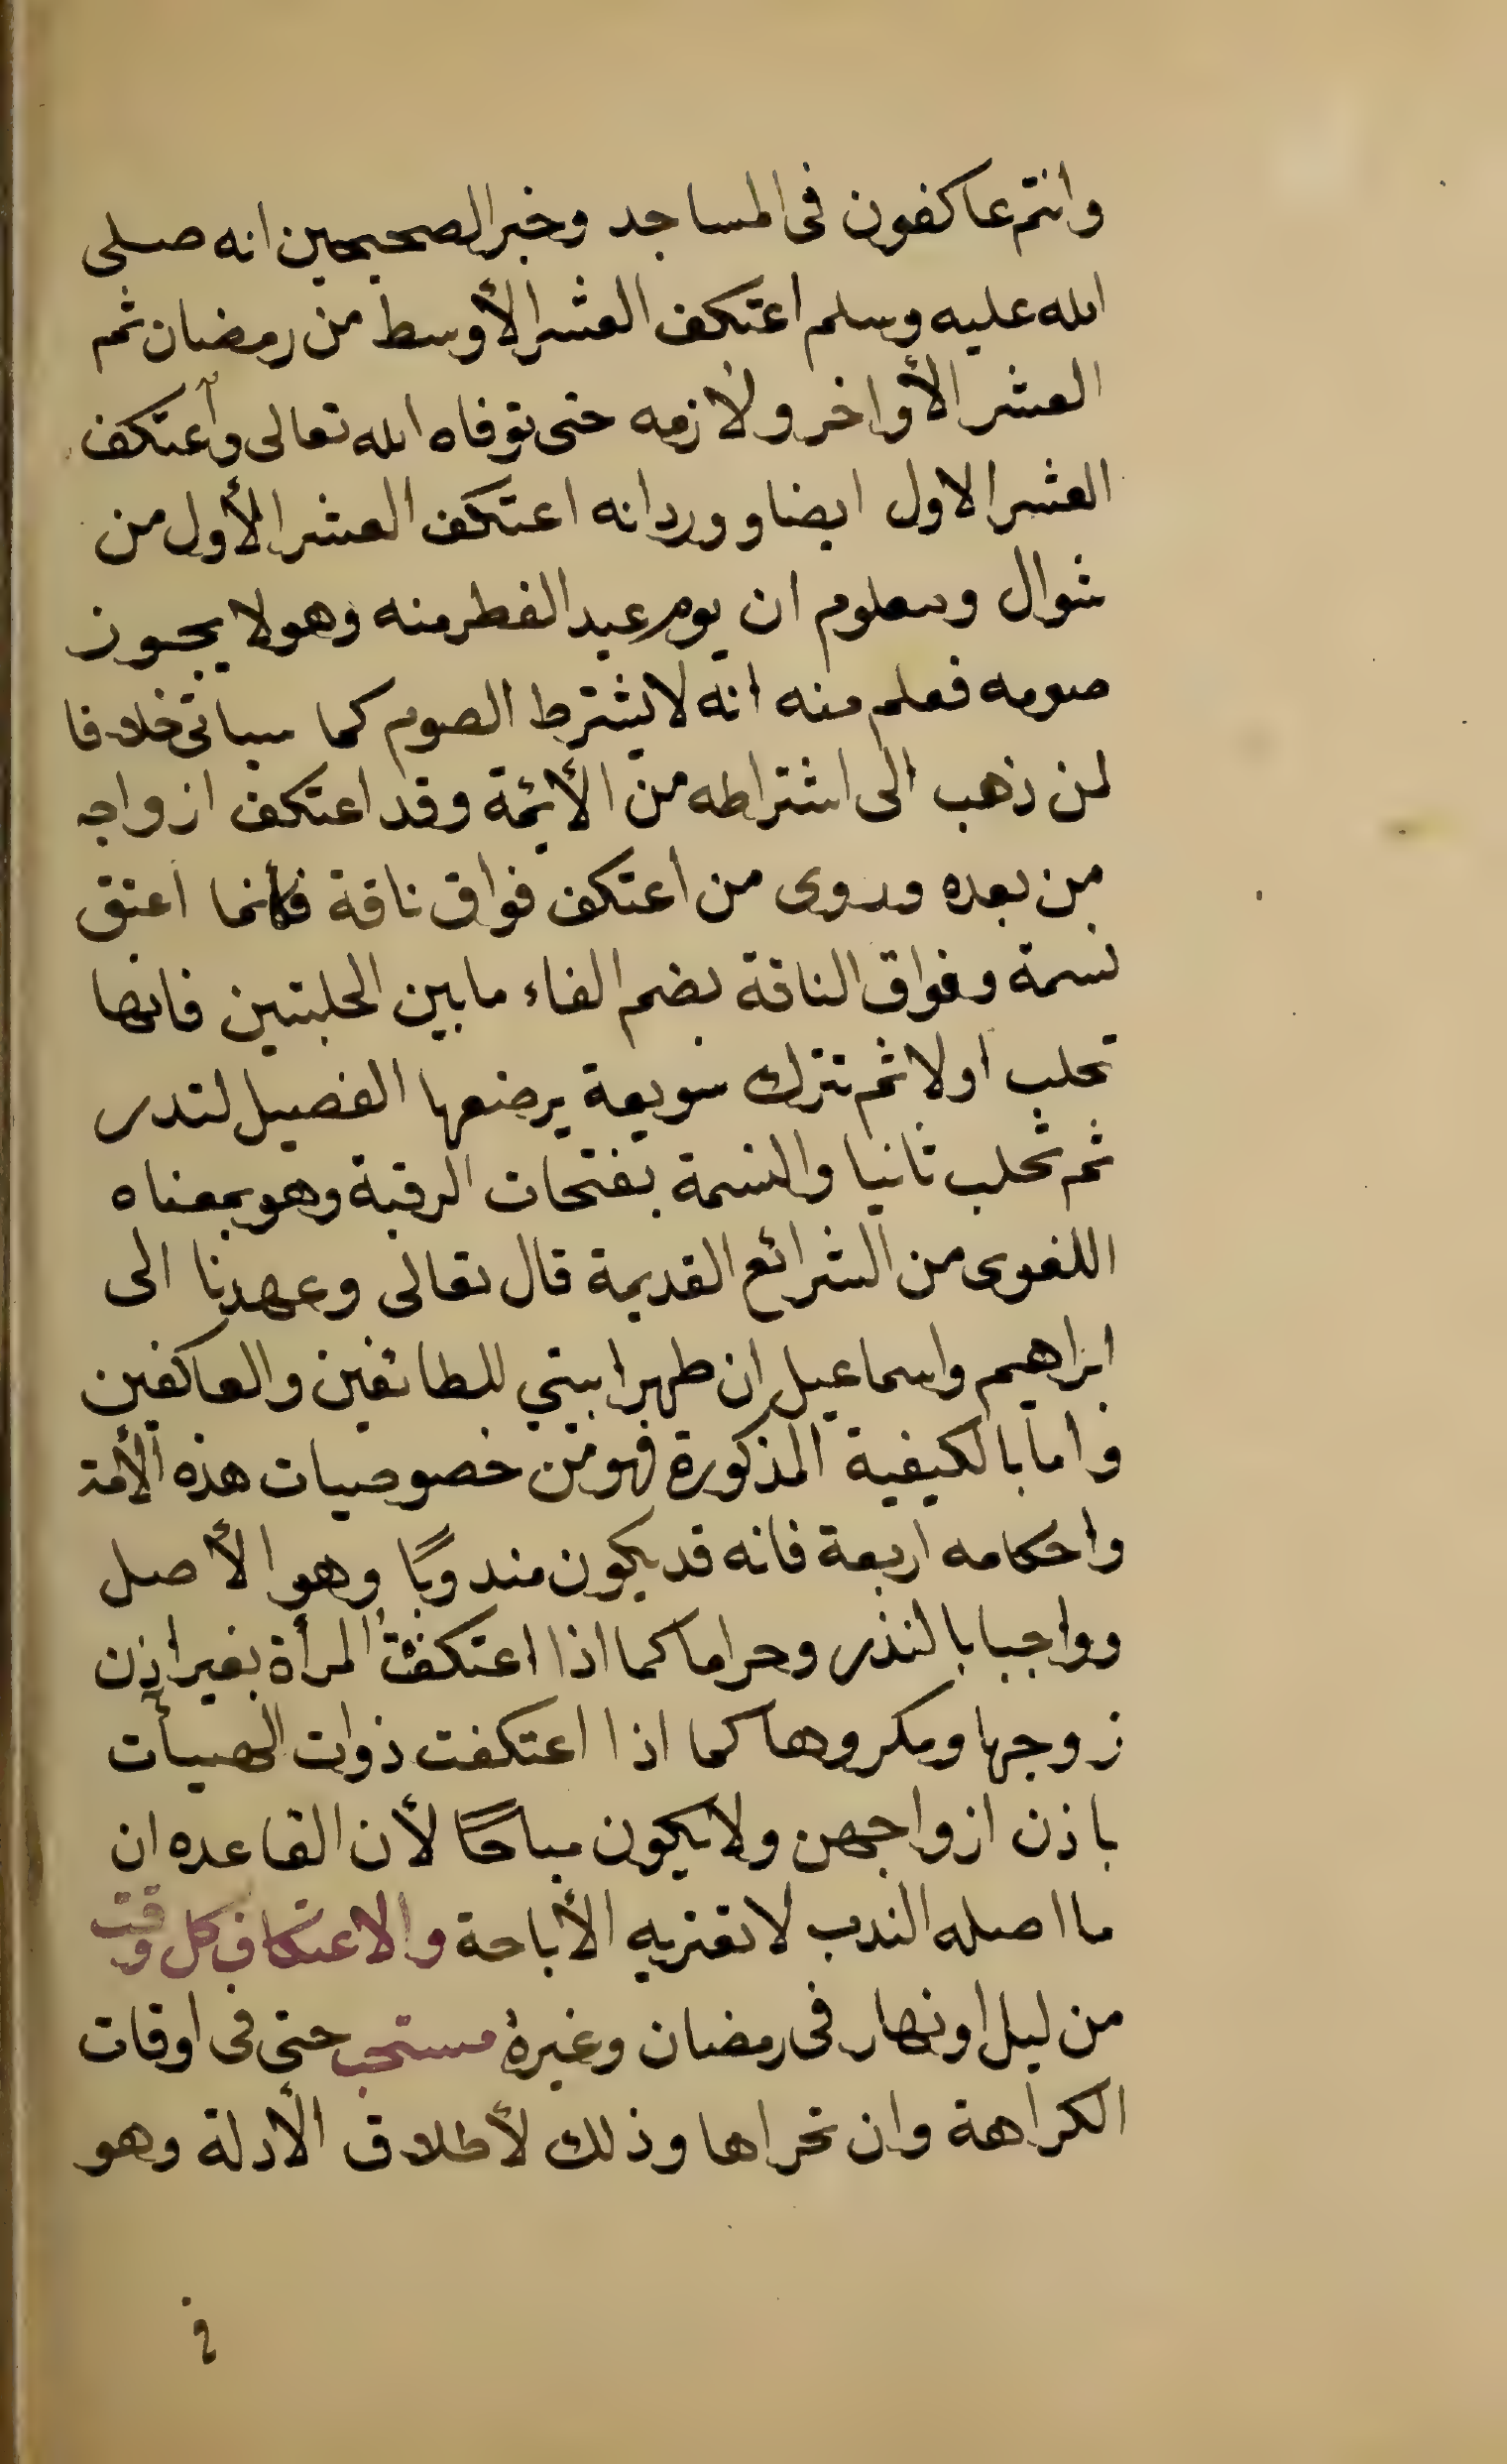 وانتم عاكفون فى المساجد وخبر الصحيحين انه صلى
الله عليه وسلم اعتكف العشر الأوسط من رمضان ثم
العشر الأواخر ولازمه حتى توفاه الله تعالى واعتكف
العشر الاول ايضا وورد انه اعتكف العشر الأول من
شوال ومعلوم ان يوم عيد الفطر منه وهو لا يجوز
صومه فعلم منه انه لا يشترط الصوم كما سياتى خلافا
لمن ذهب الى اشتراطه من الأئمة وقد اعتكف ازواجه
من بعده وروى من اعتكف فواق ناقة فكأنما اعتق
نسمة وفواق الناقة بضم الفاء ما بين الحلبتين فانها
تحلب اولا ثم تترك سويعة يرضعها الفصيل لتدر
ثم تحلب ثانيا والنسمة بفتحات الرقبة وهو بمعناه
اللغوى من الشرائع القديمة قال تعالى وعهدنا الى
ابراهيم واسماعيل ان طهرا بيتي للطائفين والعاكفين
واما بالكيفية المذكورة فهو من خصوصيات هذه الأمة
واحكامه اربعة فانه قد يكون مندوبًا وهو الأصل
وواجبا بالنذر وحراما كما اذا اعتكفت المرأة بغير اذن
زوجها ومكروها كما اذا اعتكفت ذوات الهيأت
باذن ازواجهن ولا يكون مباحًا لأن القاعده ان
ما اصله الندب لا تعتريه الأباحة والاعتكاف كل وقت
من ليل او نهار فى رمضان وغيره مستحب حتى فى اوقات
الكراهة وان تحراها وذلك لأطلاق الأدلة وهو
في